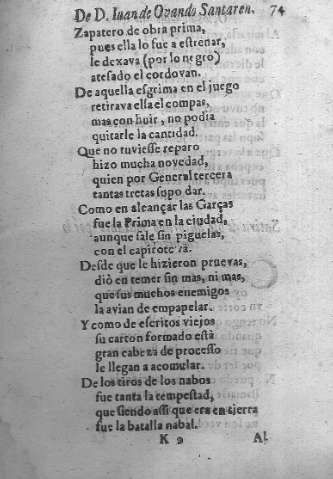 De D. Iuan de Ovando Santaren. 74
Zapatero de obra prima,
pues ella lo fue a estrenar,
le dexava (por lo negro)
atesado el cordovan.
De aquella esgrima en el juego
retirava ella el compas,
mas con huir, no podia
quitarle la cantidad.
Que no tuviesse reparo
hizo mucha novedad,
quien por General tercera
tantas tretas supo dar.
Como en alcançar las Garças
fue la Prima en la ciudad,
aunque sale sin piguelas,
con el capirote
Desde que le hizieron pruevas,
diò en temer sin mas, ni mas,
que sus muchos enemigos
la avian de empapelar.
Y como de escritos viejos
su carton formado està
gran cabeza de processo
le llegan a acomular.
De los tiros de los nabos
fue tanta la tempestad,
que siendo assi que era en tierra
fue la batalla nabal.
K 9 Al